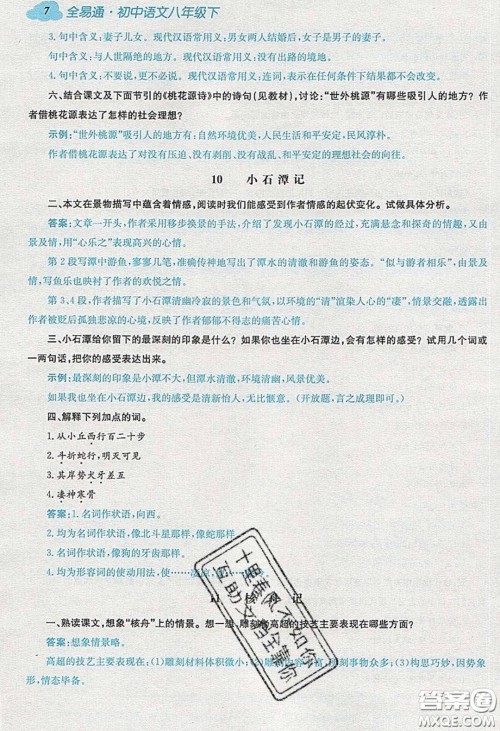 7 全易通·初中语文八年级下
3. 句中含义:妻子儿女。现代汉语常用义:男女两人结婚后,女子是男子的妻子。
4. 句中含义:与人世隔绝的地方。现代汉语常用义:没有出路的境地。
5. 句中含义:不要说,更不必说。现代汉语常用义:连词,表示在任何条件下结果都不会改变。
六、结合课文及下面节引的《桃花源诗》中的诗句(见教材),讨论:“世外桃源”有哪些吸引人的地方?作
者借桃花源表达了怎样的社会理想?
示例:“世外桃源”吸引人的地方有:自然环境优美,人民生活和平安定,民风淳朴。
作者借桃花源表达了对没有压迫、没有剥削、没有战乱、自由和平安定的理想社会的向往。
10 小石潭记
二、本文在景物描写中蕴含着情感,阅读时我们能感受到作者情感的起伏变化。试做具体分析。
答案:文章一开头,作者采用移步换景的手法,介绍了发现小石潭的经过,充满了探奇和探求的情趣,又由
景及情,用“心乐之”表现高兴的心情。
第2段写潭中游鱼,寥寥几笔,准确传神地写出了潭水的清澈和游鱼的姿态。“似与游者相乐”,由景及
情,写鱼乐也反映什么作者的欢悦之情。
第3、4段,作者描写了小石潭清幽冷寂的景色和气氛,以环境的“清”渲染人心的“凄”,情景交融,透露出
作者被贬后孤独悲凉的心境,反映了作者郁郁不得志的痛苦心情。
三、小石潭给你留下的最深刻的印象是什么?如果你也坐在小石潭边,会有怎样的感受?试用几个词或
一两句话,把你的感受表达出来。
示例:最深刻的印象是小潭不大,但潭水清澈,环境清幽,风景优美。
如果我也坐在小石潭边,感受是清新怡人,无比惬意。(开放题,言之成理即可)
四、解释下列加点的词。
1. 从小丘西行百二十步
2. 斗折蛇行,明灭可见。
3. 其岸势犬牙差互
4. 凄神寒骨
答案:1. 名词作状语,向西。
2. 均为名词作状语,像北斗星那样,像蛇那样。
3. 名词作状语,像狗的牙齿那样。
4. 均为形容词的使动用法,使……
11 核舟记
一、熟读课文,想象“核舟”上的情景。想一想,雕刻者高超的技艺主要表现在哪些方面?
答案:想象情景略。
高超的技艺主要表现在:(1)雕刻材料体积微小;(2)刻事物众多;(3)构思巧妙,因势象
形,情态毕备。
十里春风不如你
百助文档全靠你
答案圈
MXQE.COM